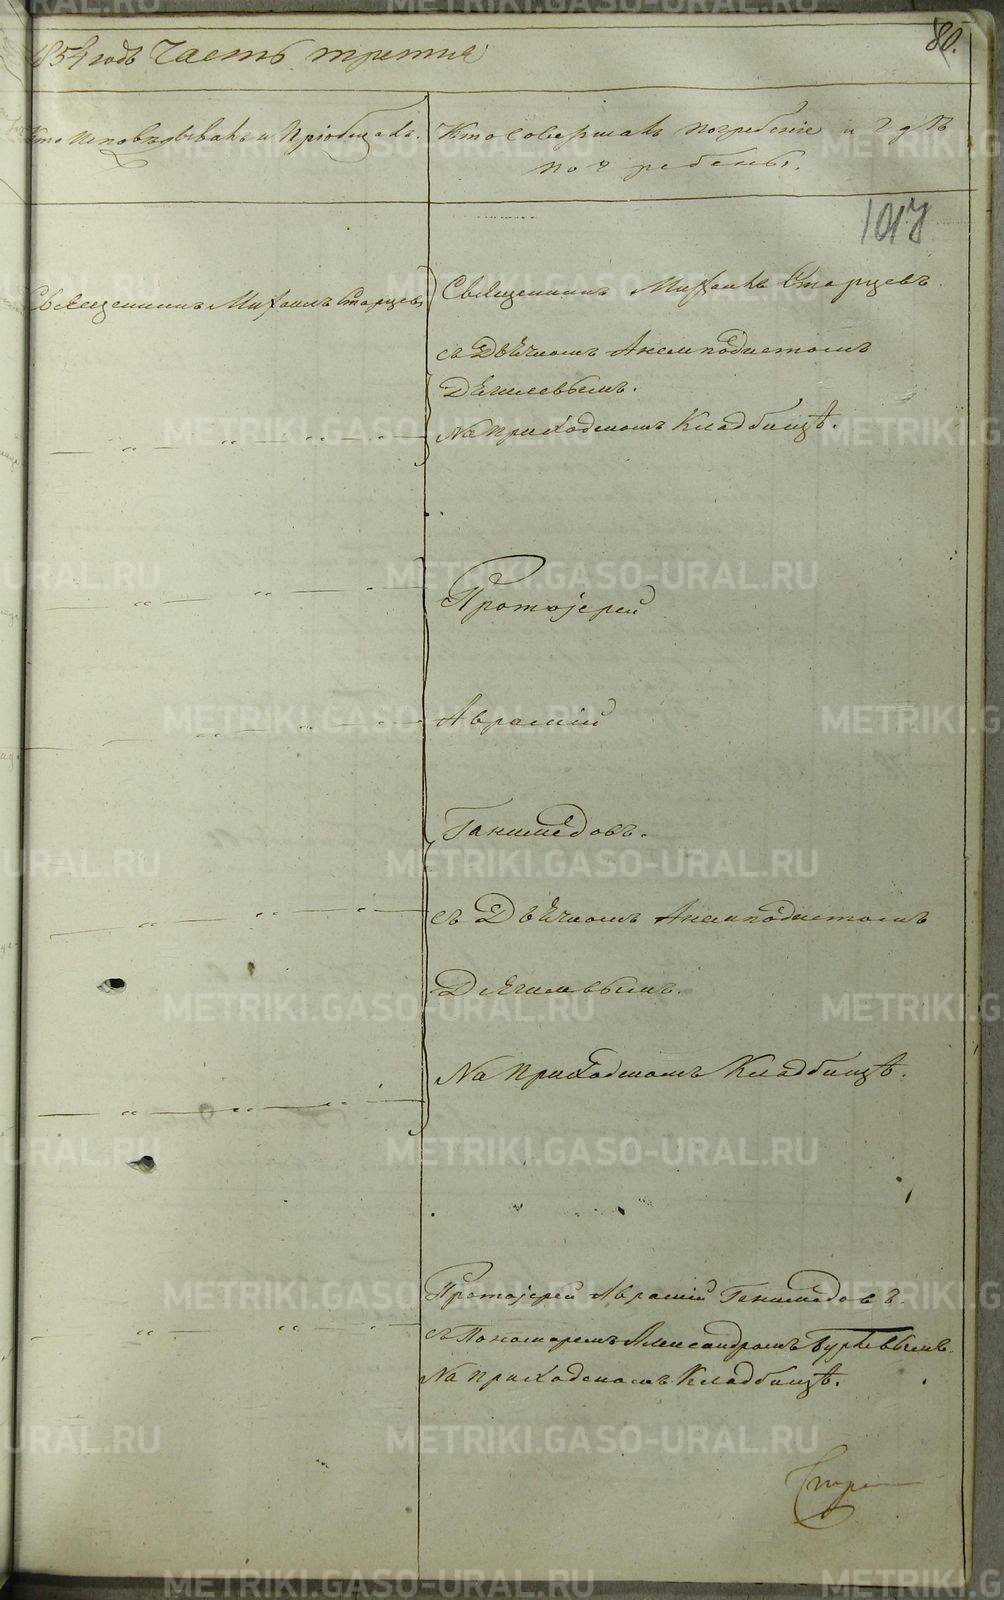 80.
1854 годъ Часть третия
Кто исповѣдывалъ и Приобщалъ.
Кто совершалъ погребеніе и гдѣ
погребены.
1017
Священникъ Михаилъ Старцевъ
Священникъ Михаилъ Старцевъ.
съ Дьячкомъ Анемподистомъ
Дягилевымъ.
На приходскомъ Кладбищѣ.
Протоіерей
Аврамій
Ганимедовъ.
съ Дьячкомъ Анемподистомъ
Дягилевымъ.
На Приходскомъ Кладбищѣ.
Протоіерей Аврамій Ганимедовъ.
съ Пономаремъ Александромъ
На приходскомъ Кладбищѣ.
METRIKI.GASO-URAL.RU